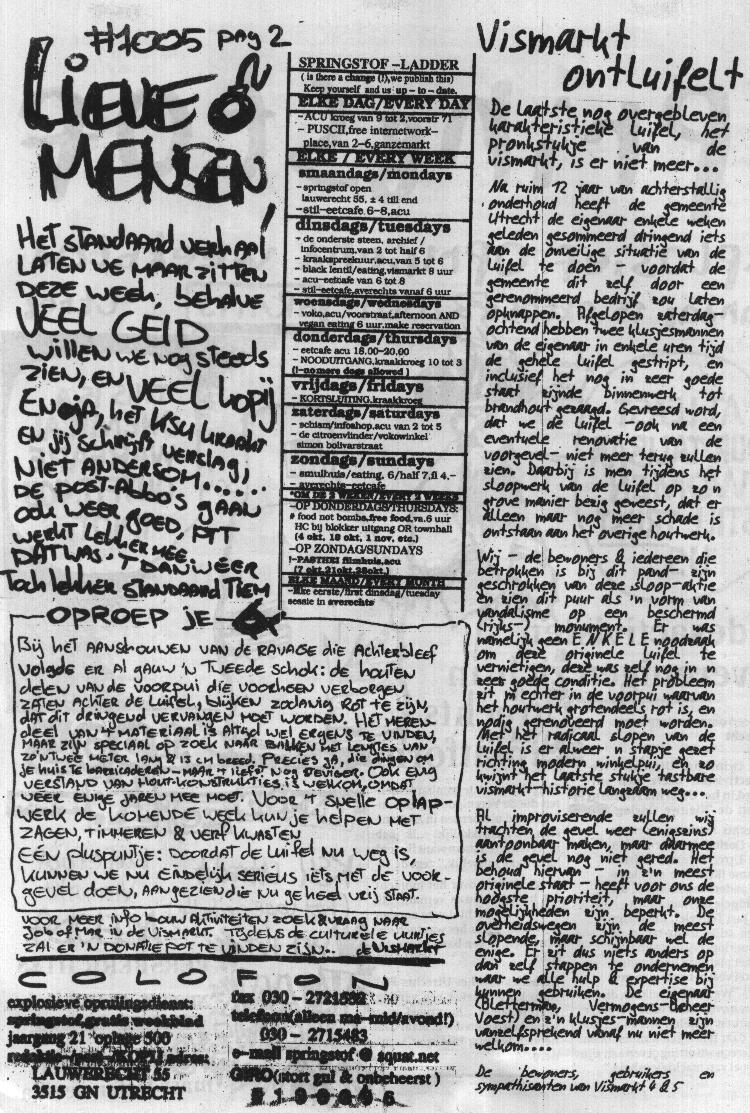 #1005 pag 2
LIEVE
MENSEN
HET STANDAARD VERHAAL
LATEN WE MAAR ZITTEN
DEZE WEEK, behalve
VEEL GELD
willen we nog steeds
ZIEN, EN VEEL kopij
EN oja, het KSU kraakt
EN jij schrijft verslag,
NIET ANDERSOM......
DE POST-Abbo's gaan
ook weer goed, PTT
werkt lekker mee
DAT WAS 'T DAN WEER
Toch lekker standaard TIEM
SPRINGSTOF -LADDER
( is there a change (!),we publish this)
Keep yourself and us up - to - date.
ELKE DAG/EVERY DAY
-ACU kroeg van 9 tot 2,voorstr 71
- PUSCII,free internetwork-
place,van 2-6,ganzemarkt
ELKE / EVERY WEEK
smaandags/mondays
- springstof open
lauwerecht 55, ± 4 till end
-stil-eetcafe 6-8,acu
dinsdags/tuesdays
- de onderste steen, archief /
infocentrum,van 2 tot half 6
- kraakspreekuur,acu,van 5 tot 6
- black lentil/eating,vismarkt 8 uur
- acu-eetcafe van 6 tot 8
- stil-eetcafe,averechts vanaf 6 uur
woensdags/wednesdays
- voko,acu/voorstraat,afternoon AND
vegan eating 6 uur,make reservation
donderdags/thursdays
- eetcafe acu 18.00-20.00
- NOODUITGANG,kraakkroeg 10 tot 3
(!-no more dogs allowed )
vrijdags/fridays
- KORTSLUITING,kraakkroeg
zaterdags/saturdays
- schism/infoshop,acu van 2 tot 5
- de citroenvlinder/vokowinkel
simon bolivarstraat
zondags/sundays
- smulhuis/eating, 6/half 7,fl 4.-
- averechts-eetcafe
*OM DE 2 WEKEN/EVERY 2 WEEKS
-OP DONDERDAGS/THURSDAYS:
# food not bombs,free food,va.6 uur
HC bij blokker uitgang OR townhall
(4 okt, 18 okt, 1 nov, etc.)
-OP ZONDAG/SUNDAYS
!-PASTHE! filmhuis,acu
(7 okt,21okt,28okt.)
ELKE MAAND/EVERY MONTH
-Elke eerste/first dinsdag/tuesday
sessie in averechts
Vismarkt
ontluifelt
De laatste nog overgebleven
karakteristieke luifel, het
pronkstukje van de
vismarkt, is er niet meer...
Na ruim 12 jaar van achterstallig
onderhoud heeft de gemeente
Utrecht de eigenaar enkele weken
geleden gesommeerd dringend iets
aan de onveilige situatie van de
luifel te doen - voordat de
gemeente dit zelf door een
gerenommeerd bedrijf zou laten
opknappen. Afgelopen zaterdag-
ochtend hebben twee klusjesmannen
van de eigenaar in enkele uren tijd
de gehele luifel gestript, en
inclusief het nog in zeer goede
staat zijnde binnenwerk tot
brandhout gezaagd. Gevreesd word,
dat we de luifel -ook na een
eventuele renovatie van de
voorgevel- niet meer terug zullen
zien. Daarbij is men tijdens het
sloopwerk van de luifel op zo'n
grove manier bezig geweest, dat er
alleen maar nog meer schade is
ontstaan aan het overige houtwerk.
Wij - de bewoners & iedereen die
betrokken is bij dit pand- zijn
geschrokken van deze sloop-aktie
en zien dit puur als 'n vorm van
vandalisme op een beschermd
(rijks-) monument. Er was
namelijk geen ENKELE noodzaak
om deze originele luifel te
vernietigen, deze was zelf nog in 'n
zeer goede conditie. Het probleem
zit 'm echter in de voorpui waarvan
het houtwerk grotendeels rot is, en
nodig gerenoveerd moet worden.
Met het radicaal slopen van de
luifel is er alweer 'n stapje gezet
richting modern winkelpui, en zo
kwijnt het laatste stukje tastbare
vismarkt-historie langzaam weg...
Al improviserende zullen wij
trachten de gevel weer (enigszins)
aantoonbaar maken, maar daarmee
is de gevel nog niet gered. Het
behoud hiervan - in z'n meest
originele staat - heeft voor ons de
hoogste prioriteit, maar onze
mogelijkheden zijn beperkt. De
overheidswegen zijn de meest
slopende, maar schijnbaar wel de
enige. Er zit dus niets anders op
dan zelf stappen te ondernemen
waar we alle hulp & expertise bij
kunnen gebruiken. De eigenaar
(Bletterman, Vermogens-Beheer
Voest) en z'n klusjes-mannen zijn
vanzelfsprekend vanaf nu niet meer
welkom....
De bewoners, gebruikers en
sympathisanten van Vismarkt 4 & 5
OPROEP JE
Bij HET AANSCHOUWEN VAN DE RAVAGE DIE ACHTERBLEEF
VOLGDE ER AL GAUW 'N TWEEDE SCHOK: de HOUTEN
DELEN VAN DE VOORPUI DIE VOORHEEN VERBORGEN
ZATEN ACHTER DE LUIFEL, BLIJKEN ZODANIG ROT TE ZIJN,
DAT DIT DRINGEND VERVANGEN MOET WORDEN. HET MEREN-
DEEL VAN 'T MATERIAAL IS ALTIJD WEL ERGENS TE VINDEN,
MAAR ZIJN SPECIAAL OP ZOEK NAAR BALKEN MET LENGTES VAN
ZO'N TWEE METER LANG & 13 CM BREED. PRECIES JA, DIE DINGEN OM
JE HUIS TE BARRICADEREN - MAAR 'T LIEFST NOG STEVIGER. OOK ENIG
VERSTAND VAN HOUT-KONSTRUKTIES IS WELKOM, OMDAT
WEER ENIGE JAREN MEE MOET. VOOR 'T SNELLE OPLAP-
WERK DE KOMENDE WEEK KUN JE HELPEN MET
ZAGEN, TIMMEREN & VERF KWASTEN
EEN PLUSPUNTJE: DOORDAT DE LUIFEL NU WEG IS,
KUNNEN WE NU EINDELIJK SERIEUS IETS MET DE VOOR-
GEVEL DOEN, AANGEZIEN DIE NU GEHEEL VRIJ STAAT.
VOOR MEER INFO BOUW AKTIVITEITEN ZOEK & VRAAG NAAR
JOB of MAR IN DE VISMARKT. TIJDENS DE CULTURELE UURTJES
ZAL ER 'N DONATIE POT TE VINDEN ZIJN.. de VISMARKT
COLOFON
explosieve opruiingsdienst:
springstof,gratis weekblad
jaargang 21 oplage 500
LAUWERECHT 55
3515 GN UTRECHT
fax 030 - 2721532
telefoon(alleen ma-mid/avond!)
030 - 2715483
e-mail springstof @ squat.net
GIRO(stort gul & onbeheerst )